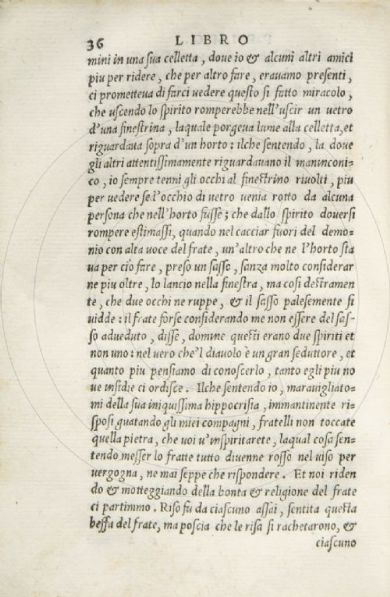 36 LIBRO
mini in una sua celletta, dove io & alcuni altri amici
piu per ridere, che per altro fare, eravamo presenti,
ci prometteva di farci vedere questo si fatto miracolo,
che uscendo lo spirito romperebbe nell'uscir un vetro
d'una finestrina, laquale porgeva lume alla celletta, et
riguardava sopra d'un horto: ilche sentendo, la dove
gli altri attentissimamente riguardavano il maninconi-
co, io sempre tenni gli occhi al finestrino rivolti, piu
per vedere se l'occhio di vetro venia rotto da alcuna
persona che nell'horto fusse; che dallo spirito doversi
rompere estimassi, quando nel cacciar fuori del demo-
nio con alta voce del frate, un'altro che ne l'horto sta
va per cio fare, preso un sasso, sanza molto considerar
ne piu oltre, lo lancio nella finestra, ma cosi destramen
te, che due occhi ne ruppe, & il sasso palesemente si
vidde: il frate forse considerando me non essere del sas-
so adveduto, disse, domine questi erano due spiriti et
non uno: nel vero che'l diavolo è un gran seduttore, et
quanto piu pensiamo di conoscerlo, tanto egli piu no
ve insidie ci ordisce. Ilche sentendo io, maravigliato-
mi della sua iniquissima hippocrisia, immantinente ri-
sposi guatando gli miei compagni, fratelli non toccate
quella pietra, che voi v'inspiritarete, laqual cosa sen-
tendo messer lo fratte tutto divenne rosso nel viso per
vergogna, ne mai seppe che rispondere. Et noi riden
do & motteggiando della bonta & religione del frate
ci partimmo. Riso fu da ciascuno assai, sentita questa
beffa del frate, ma poscia che le risa si rachetarono, &
ciascuno